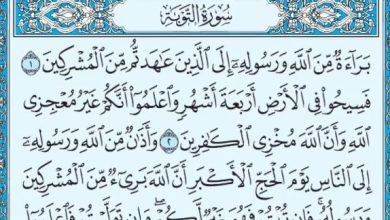 سُورَةُ التَّوْبَةِ
بَرَآءَةٌ مِّنَ ٱللَّهِ وَرَسُولِهِۦٓ إِلَى ٱلَّذِينَ عَٰهَدتُّم مِّنَ ٱلْمُشْرِكِينَ ١
فَسِيحُوا۟ فِى ٱلْأَرْضِ أَرْبَعَةَ أَشْهُرٍ وَٱعْلَمُوٓا۟ أَنَّكُمْ غَيْرُ مُعْجِزِى
ٱللَّهِ وَأَنَّ ٱللَّهَ مُخْزِى ٱلْكَٰفِرِينَ ٢ وَأَذَٰنٌ مِّنَ ٱللَّهِ وَرَسُولِهِۦٓ
إِلَى ٱلنَّاسِ يَوْمَ ٱلْحَجِّ ٱلْأَكْبَرِ أَنَّ ٱللَّهَ بَرِىٓءٌ مِّنَ ٱلْمُشْرِكِينَ